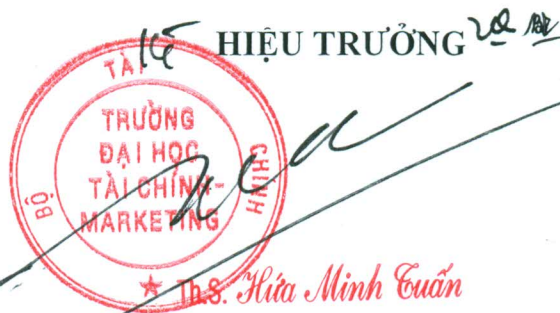 HIỆU TRƯỞNG
BỘ TÀI CHÍNH
TRƯỜNG
ĐẠI HỌC
TÀI CHÍNH-
MARKETING
Th.S. Hứa Minh Tuấn